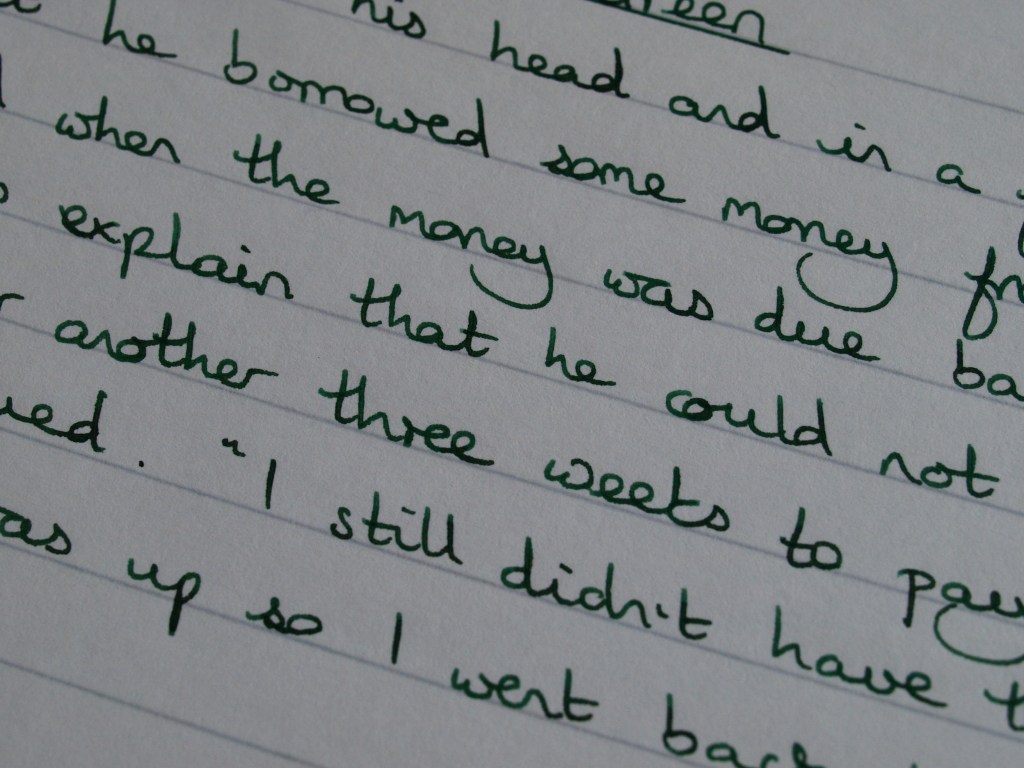 his head and in a
he borrowed some money
when the money was due
explain that he could not
another three weeks to pay
"I still didn't have
as up so I went back